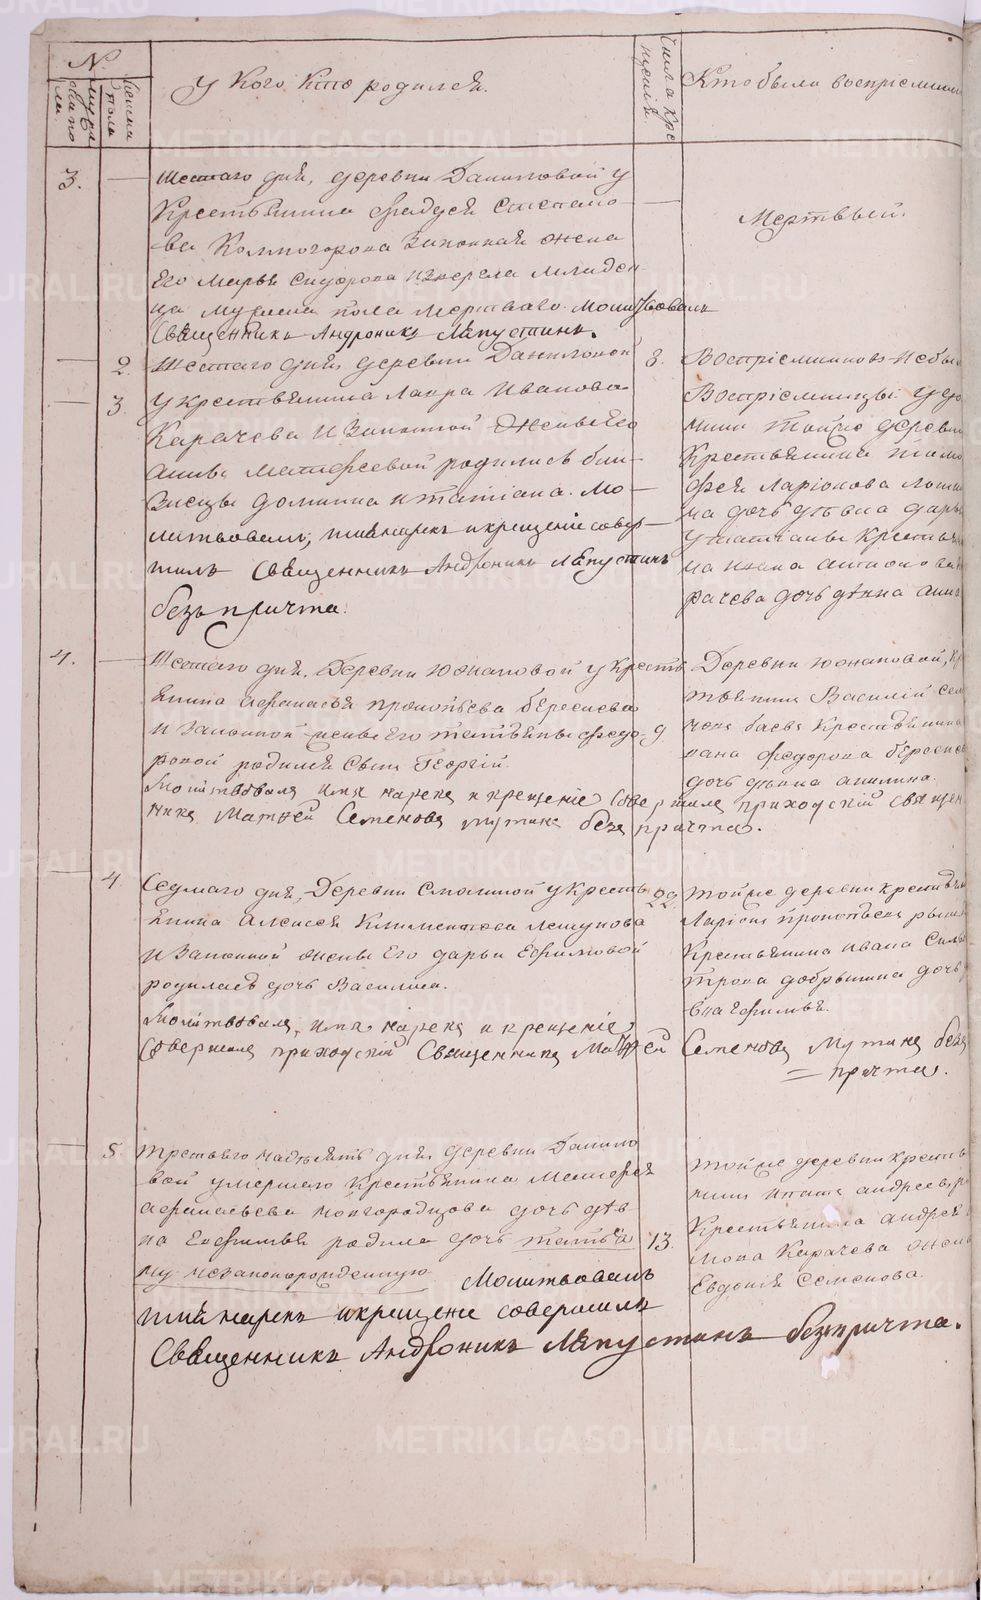 №
мужеска по ла.
женска пола
У кого кто родился.
Числа кре щения
Кто были восприемники
3.
Шестаго дня, деревни Даниловой у
Крестьянина Фадея Степано
ва Колмогорова Законная жена
Его Марья Сидорова извергла младен
ца мужеска пола мертваго. Молитвовалъ
Священникъ Андроникъ Лапустинъ.
Мертвый.
2.
3.
Шестаго дня, деревни Даниловой
у крестьянина Лавра Иванова
Карачева и Законной жены его
Анны Матфеевой родились близ
нецы Домника и Татiана. Мо
литвовалъ, имя нарекъ и крещенiе совер
шилъ Священникъ Андроникъ Лапустинъ
безъ причта.
8.
Воспрiемниковъ не бы
Воспрiемницы у До
мники тойже деревни
Крестьянина Тимо
фея Ларiонова
на дочь девка Дарья
у Татианы Крестья
на Ивана Антонова Ка
рачева дочь девка Анна
4.
Шестаго дня, Деревни Юконаповой у Кресть
янина Афанасья Прокопьева Береснева
и Законной жены Его Татьяны Федо
ровой родился сынъ Георгiй.
Молитвовалъ имя нарекъ и крещенiе совершилъ приходскiй священ
никъ Матвей Семеновъ Мутинъ безъ причта.
9
Деревни Юконаповой, кр
стьянинъ Василiй Сем
Крестьянина
вана Федорова Бересне
дочь девка Акилина.
4
Седмаго дня, Деревни Смолиной у кресть
янина Алексея Климентова Лешукова
и Законной жены Его Дарьи Ефимовой
родилась дочь Василиса.
Молитвовалъ, имя нарекъ и крещенiе
Совершилъ приходскiй Священникъ Матвей Семеновъ Мутинъ безъ
причта.
22.
тойже деревни крестьян
Ларiонъ Прокопьевъ
Крестьянина Ивана
трова Добрынина дочь
5.
третьяго надесять дня деревни Данило
вой умершаго Крестьянина Матфея
Афанасьева Новгородцова дочь дев
ка Евфимья родила дочь Татьа
ну незаконорожденную Молитвовалъ
имя нарекъ и крещенiе совершилъ
Священникъ Андроникъ Лапустинъ безъ причта.
13.
тойже деревни кресть
нинъ Игнатъ Андреевъ
Крестьянина Андрея
мова Карачева жена
Евдокiя Семенова.